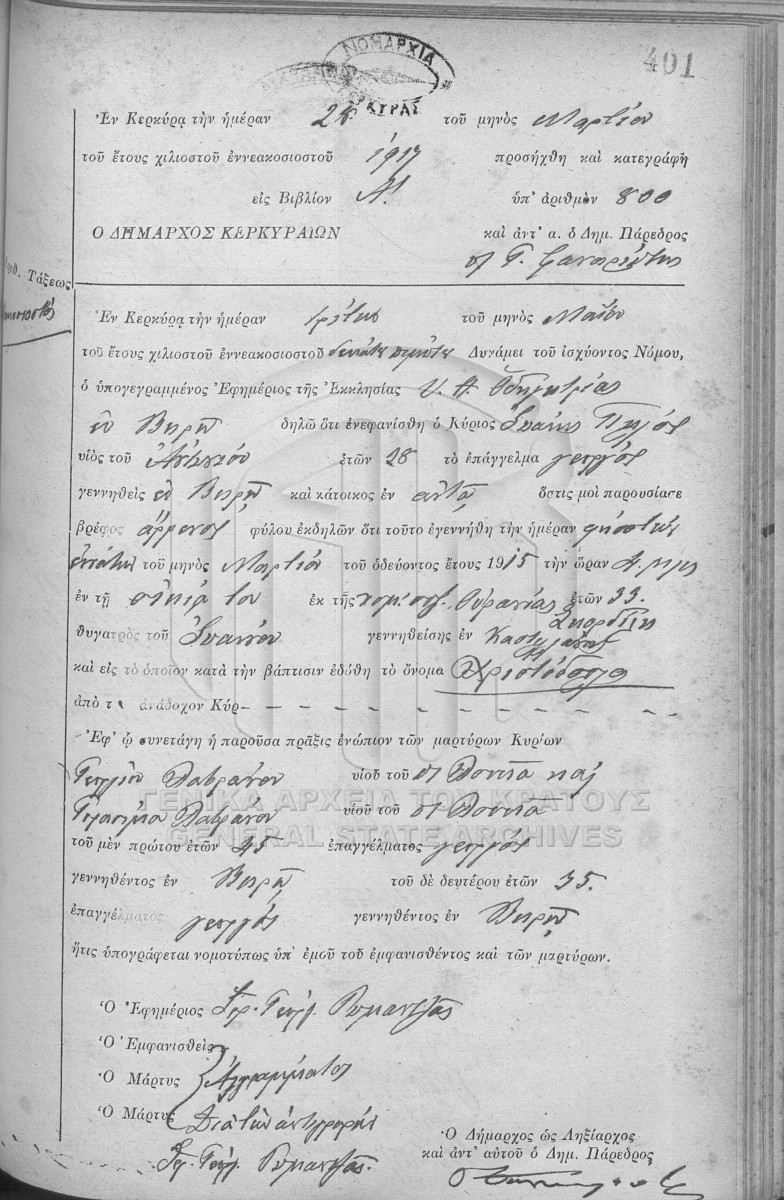 401
ΝΟΜΑΡΧΙΑ
ΚΕΡΚΥΡΑΣ
Ἐν Κερκύρᾳ τὴν ἡμέραν 28 τοῦ μηνὸς Μαρτίου
τοῦ ἔτους χιλιοστοῦ ἐννεακοσιοστοῦ 1917 προσήχθη καὶ κατεγράφη
εἰς Βιβλίον Α! ὑπ' ἀριθμὸν 800
Ο ΔΗΜΑΡΧΟΣ ΚΕΡΚΥΡΑΙΩΝ καὶ ἀντ' α. ὁ Δημ. Πάρεδρος
Τάξεως
Ἐν Κερκύρᾳ τὴν ἡμέραν τρίτην τοῦ μηνὸς Μαΐου
τοῦ ἔτους χιλιοστοῦ ἐννεακοσιοστοῦ δεκάτου πέμπτου Δυνάμει τοῦ ἰσχύοντος Νόμου,
ὁ ὑπογεγραμμένος Ἐφημέριος τῆς Ἐκκλησίας Υ. Θ. Ὁδηγητρίας
ἐν Βηρῷ δηλῶ ὅτι ἐνεφανίσθη ὁ Κύριος Σπύρος
υἱὸς τοῦ ἐτῶν 28 τὸ ἐπάγγελμα γεωργὸς
γεννηθεὶς ἐν Βηρῷ καὶ κάτοικος ἐν αὐτῷ ὅστις μοὶ παρουσίασε
βρέφος ἄρρενος φύλου ἐκδηλῶν ὅτι τοῦτο ἐγεννήθη τὴν ἡμέραν εἰκοστὴν
ἐνάτην τοῦ μηνὸς Μαρτίου τοῦ ὁδεύοντος ἔτους 1915 τὴν ὥραν
ἐν τῇ οἰκίᾳ του ἐκ τῆς νομ. συζ. Οὐρανίας ἐτῶν 33
θυγατρὸς τοῦ Ἰωάννου Σκορδίλη γεννηθείσης ἐν Καστελλάνοι
καὶ εἰς τὸ ὁποῖον κατὰ τὴν βάπτισιν ἐδόθη τὸ ὄνομα Χριστόδουλος
ἀπὸ τ ἀνάδοχον Κύρ
Ἐφ' ᾧ συνετάγη ἡ παροῦσα πρᾶξις ἐνώπιον τῶν μαρτύρων Κυρίων
Γεωργίου Λαβράνου υἱοῦ τοῦ καὶ
Γερασίμου Λαβράνου υἱοῦ τοῦ
ΓΕΝΙΚΑ ΑΡΧΕΙΑ ΤΟΥ ΚΡΑΤΟΥΣ
GENERAL STATE ARCHIVES
τοῦ μὲν πρώτου ἐτῶν 45 ἐπαγγέλματος γεωργὸς
γεννηθέντος ἐν Βηρῷ τοῦ δὲ δευτέρου ἐτῶν 35.
ἐπαγγέλματος γεωργὸς γεννηθέντος ἐν Βηρῷ
ἥτις ὑπογράφεται νομοτύπως ὑπ' ἐμοῦ τοῦ ἐμφανισθέντος καὶ τῶν μαρτύρων.
Ὁ Ἐφημέριος Ἱερ. Γεώργ. Ρωμαντζᾶς
Ὁ Ἐμφανισθεὶς
Ὁ Μάρτυς Ἀγράμματοι
Ὁ Μάρτυς Διὰ τὴν ἀντιγραφὴν
Ἱερ. Γεώργ. Ρωμαντζᾶς.
Ὁ Δήμαρχος ὡς Ληξίαρχος
καὶ ἀντ' αὐτοῦ ὁ Δημ. Πάρεδρος